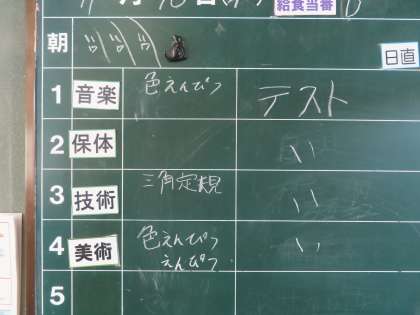 給食当番
朝
日直
1 音楽 色えんぴつ テスト
2 保体 〃
3 技術 三角定規 〃
4 美術 色えんぴつ 〃
えんぴつ
5